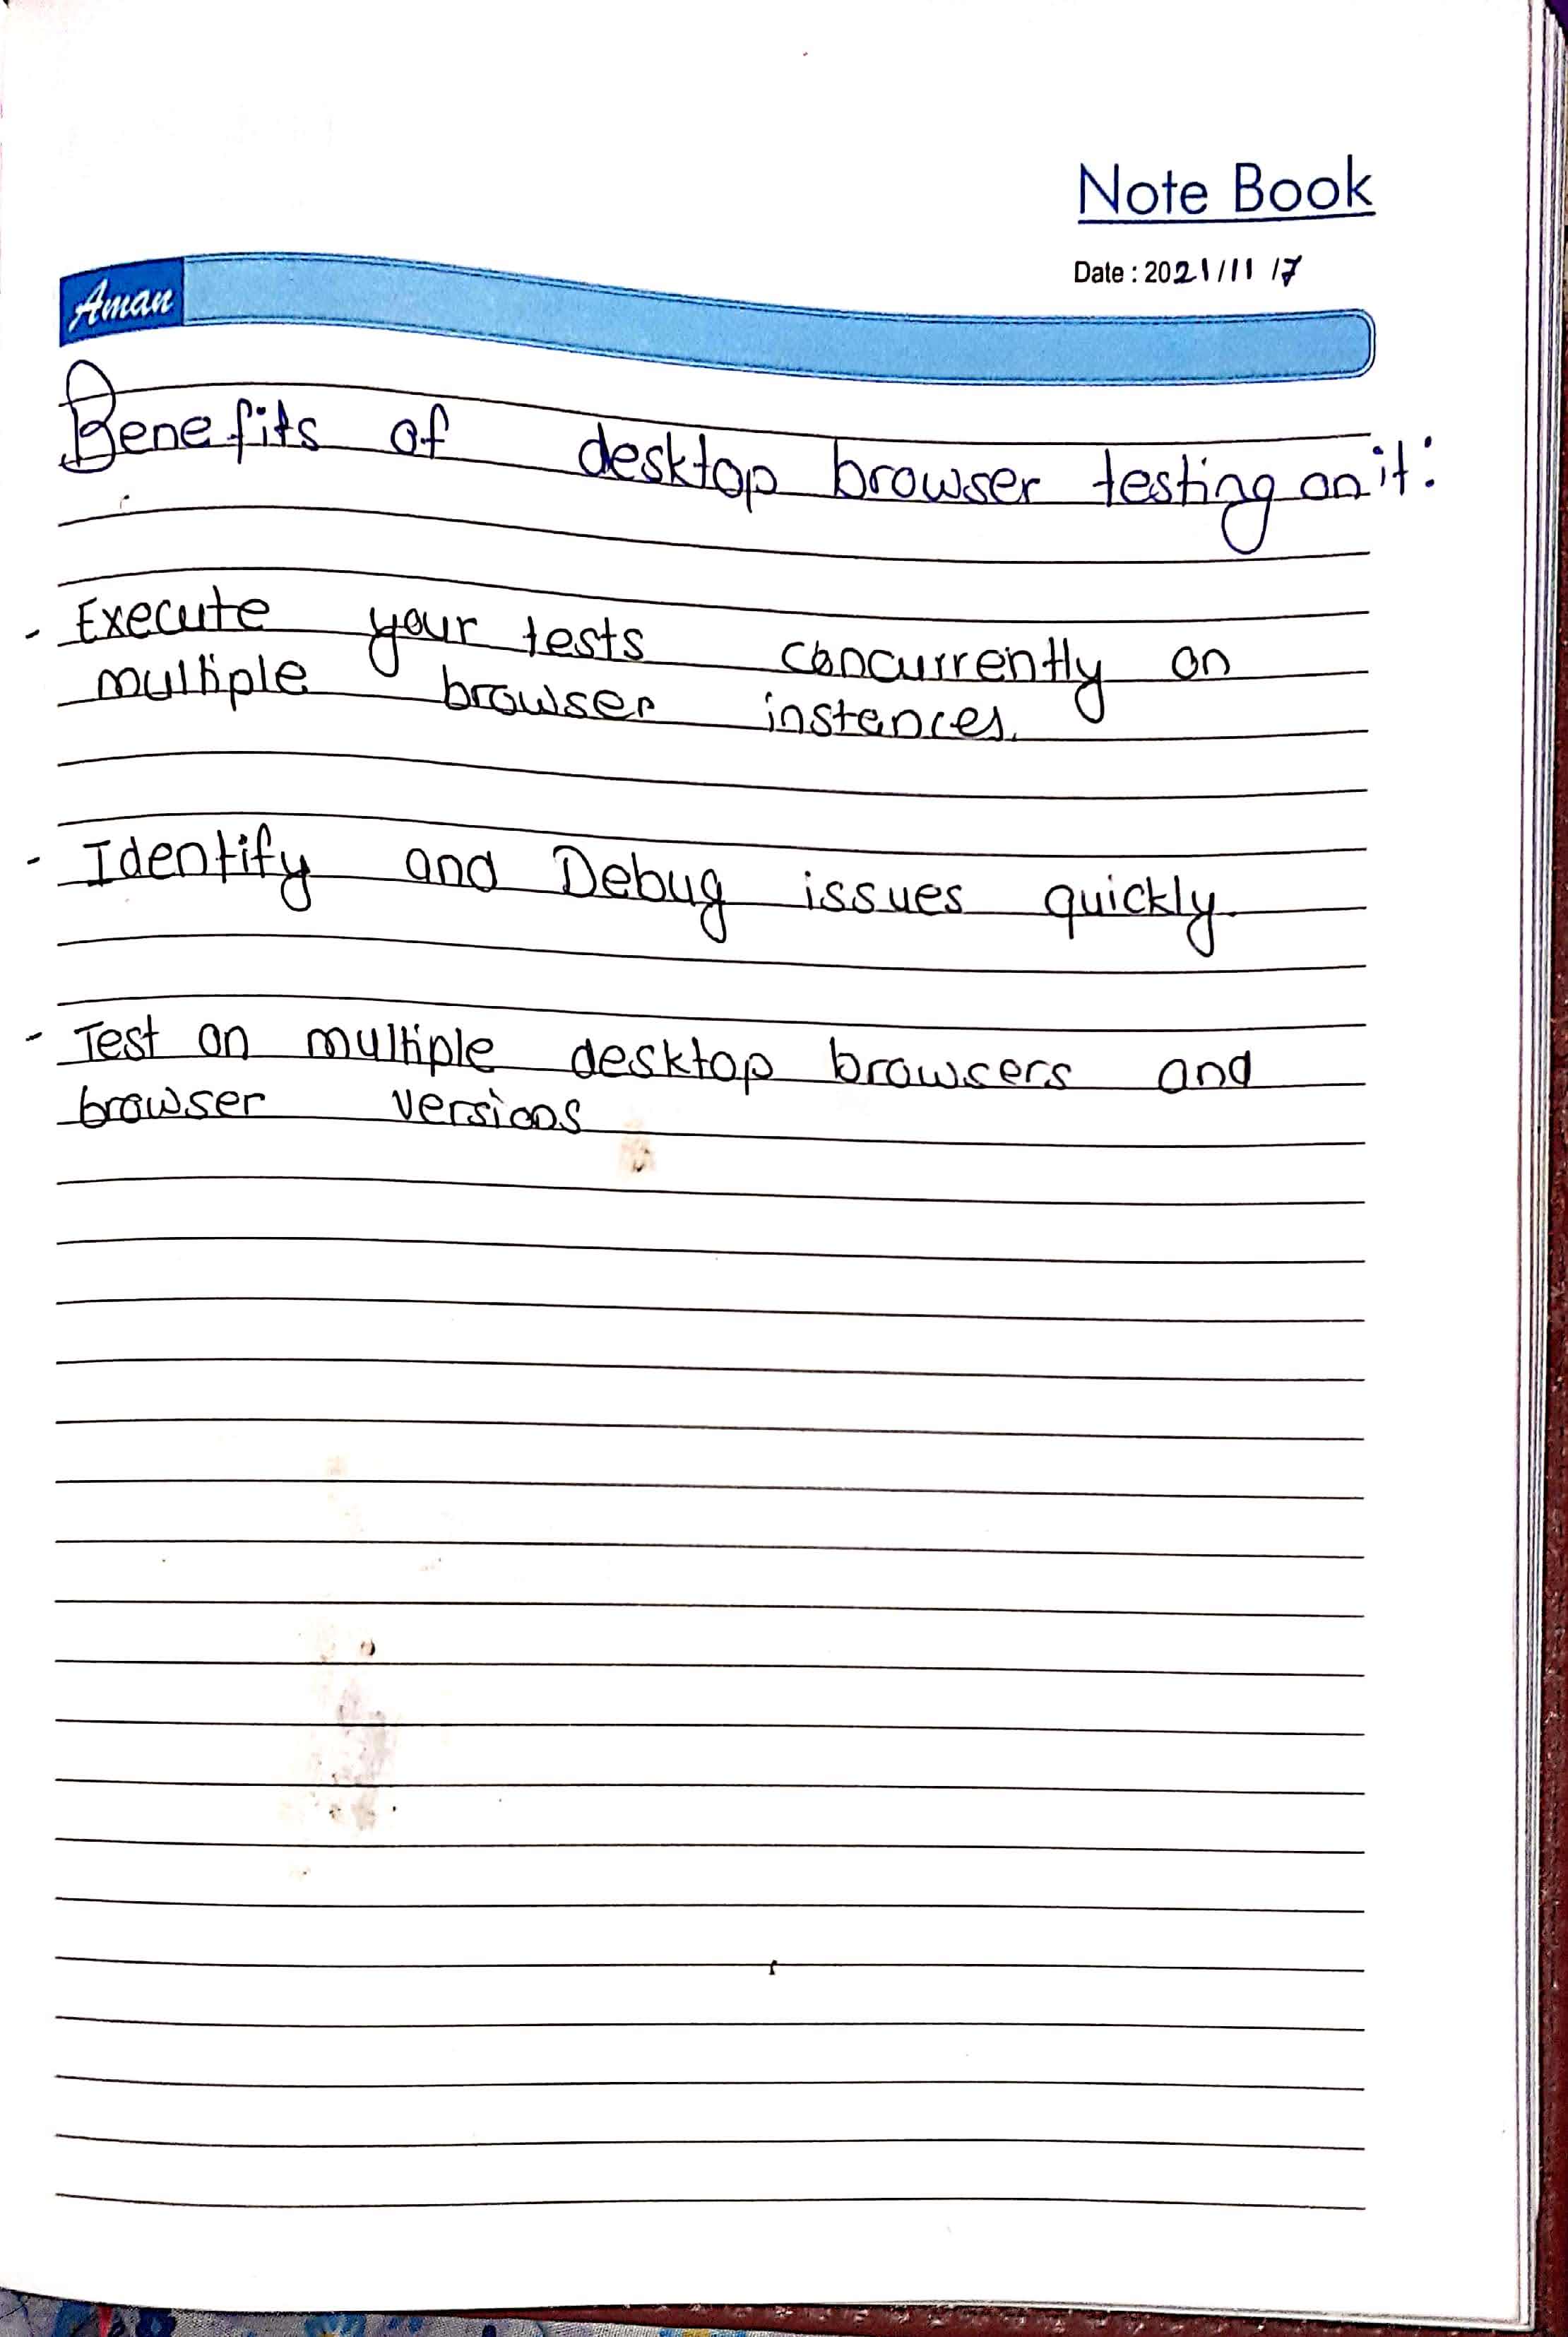 Note Book
Date : 2021/11/7
Aman
Benefits of desktop browser testing on it:
- Execute your tests concurrently on
multiple browser instances.
- Identify and Debug issues quickly.
- Test on multiple desktop browsers and
browser versions